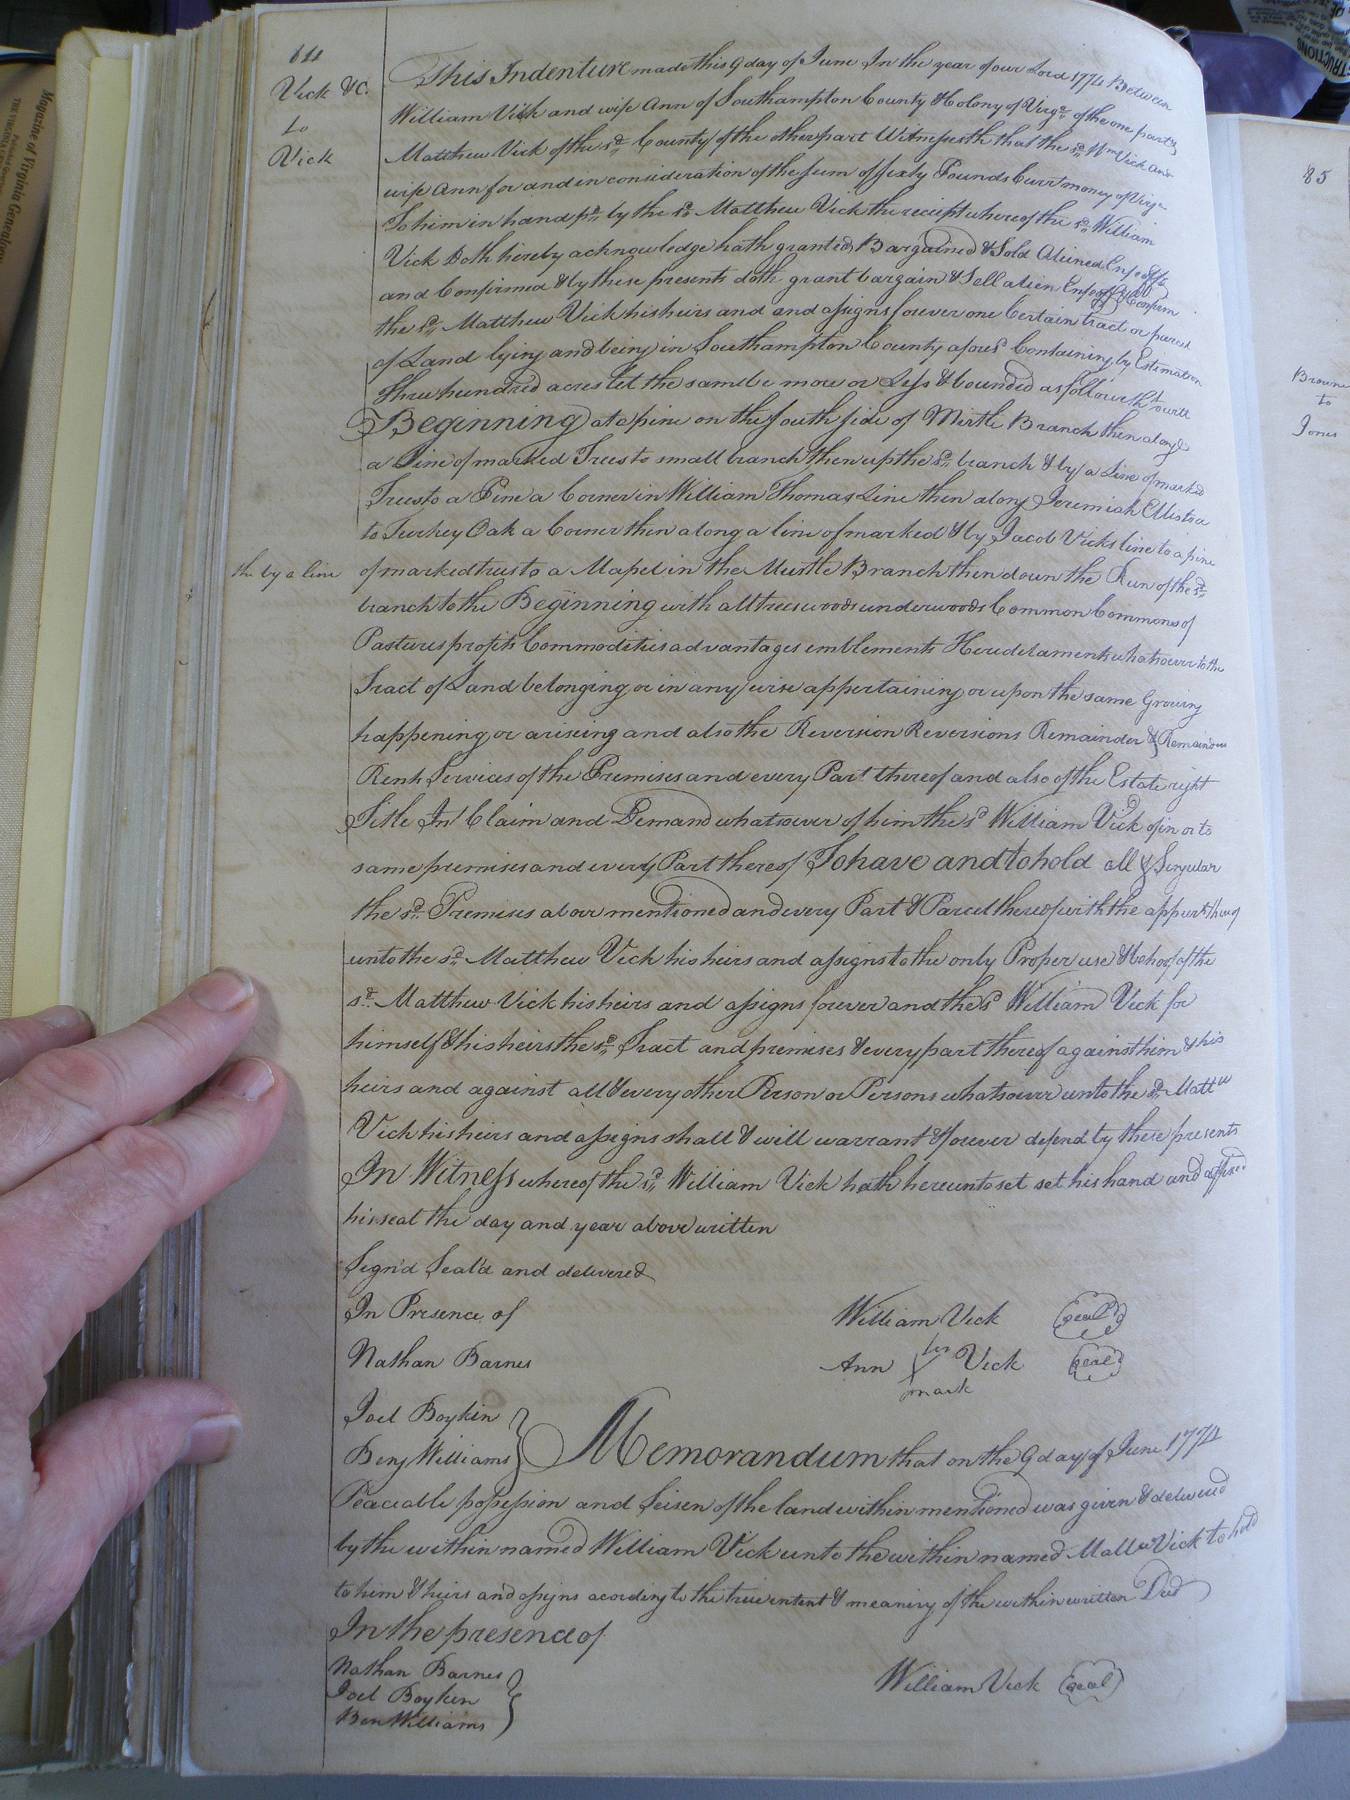 Vick &C.
to
Vick
This Indenture made this 9 day of June In the year of our Lord 1774 Between
William Vick and wife Ann of Southampton County & Colony of Virga. of the one part &
Matthew Vick of the sd. County of the other part Witnesseth that the sd. Wm Vick and
wife Ann for and in consideration of the sum of sixty Pounds Curt money of Virga
To him in hand pd. by the sd. Matthew Vick the receipt whereof the sd. William
Vick Doth hereby acknowledge hath granted Bargained & Sold Aliened Enfeoffd
and Confirmed & by these presents doth grant bargain & Sell alien Enfeoff & Confirm
the sd. Matthew Vick his heirs and and assigns forever one Certain tract or parcel
of Land lying and being in Southampton County afores Containing by Estimation
Three hundred acres let the same be more or Less & bounded as followeth towit
Beginning at a pine on the South side of Mirtle Branch then along
a Line of marked Trees to small branch then up the sd. branch & by a Line of marked
Trees to a Pine a Corner in William Thomas Line then along Jeremiah Ellis to a
to Turkey Oak a Corner then along a line of marked & by Jacob Vicks line to a pine
the by a line
of marked trees to a Mapel in the Murtle Branch then down the Run of the sd.
branch to the Beginning with all trees woods underwoods Common Commons of
Pastures profits Commodities advantages emblements Heredetaments whatsoever to the
Tract of Land belonging or in any wise appertaining or upon the same Growing
happening or arising and also the Reversion Reversions Remainder & Remainders
Rents Services of the Premises and every Part thereof and also of the Estate right
Title Int Claim and Demand whatsoever of him the sd William Vick of in or to
same premises and every Part thereof To have and to hold all & Singular
the sd. Premises above mentioned and every Part & Parcel thereof with the appurts
unto the sd. Matthew Vick his heirs and assigns to the only Proper use & behoof of the
sd. Matthew Vick his heirs and assigns forever and the sd William Vick for
himself & his heirs the sd. Tract and premises & every part thereof against him & his
heirs and against all & every other Person or Persons whatsoever unto the sd. Mattw
Vick his heirs and assigns shall & will warrant & forever defend by these presents
In Witness whereof the sd. William Vick hath hereunto set set his hand and affixed
his seal the day and year above written
Sign'd Seal'd and delivered
In Presence of William Vick seal
Nathan Barnes Ann her X mark Vick seal
Joel Boykin
Benj Williams Memorandum that on the 9 day of June 1774
Peaceable possession and Seisen of the land within mentioned was given & delivered
by the within named William Vick unto the within named Mattw Vick to hold
to him & heirs and assigns acording to the true intent & meaning of the within written Deed
In the presence of
Nathan Barnes
Joel Boyken William Vick seal
Ben Williams
85
Browne
to
Jones
Magazine of Virginia Genealogy